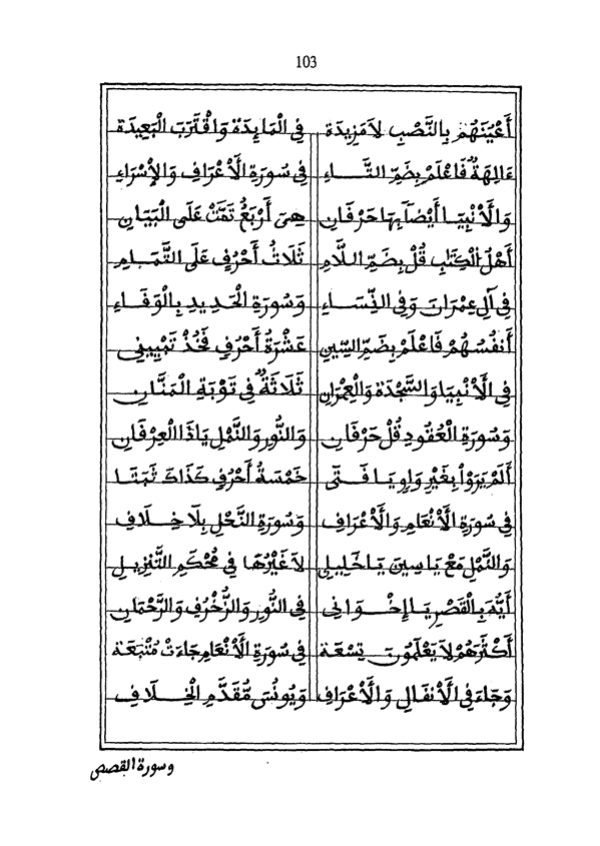 103
أَعْيُنَهُمْ بِالنَّصْبِ لاَ مَزِيدَة فِي الْمَايِدَة وَاقْتَرَبَ الْبَعِيدَة
ءَالِهَةٌ فَاعْلَمْ بِضَمِّ التَّاءِ فِي سُورَةِ الْأَعْرَافِ وَالْإِسْرَاءِ
وَالْأَنْبِيَا أَيْضًا بِهَا حَرْفَانِ هِيَ أَرْبَعٌ تَمَّتْ عَلَى الْبَيَانِ
أَهْلُ الْكِتَبِ قُلْ بِضَمِّ اللَّامِ ثَلَاثُ أَحْرُفٍ عَلَى التَّمَامِ
فِي آلِ عِمْرَانَ وَفِي النِّسَاءِ وَسُورَةِ الْحَدِيدِ بِالْوَفَاءِ
أَنفُسُهُمْ فَاعْلَمْ بِضَمِّ السِّينِ عَشْرَةُ أَحْرُفٍ فَخُذْ تَمْيِينِي
فِي الْأَنْبِيَا وَالسَّجْدَة وَالْعِمْرَانِ ثَلَاثَةٌ فِي تَوْبَةِ الْمَنَّانِ
وَسُورَةِ الْعُقُودِ قُلْ حَرْفَانِ وَالنُّورِ وَالنَّمْلِ يَاذَا الْعِرْفَانِ
أَلَمْ يَرَوْاْ بِغَيْرِ وَاوٍ يَا فَتَى خَمْسَةُ أَحْرُفٍ كَذَاكَ ثَبَتَا
فِي سُورَةِ الْأَنْعَامِ وَالْأَعْرَافِ وَسُورَةِ النَّحْلِ بِلَا خِلَافِ
وَالنَّمْلِ مَعْ يَاسِينَ يَا خَلِيلِي لاَ غَيْرُهَا فِي مُحْكَمِ التَّنْزِيلِ
أَيُّهَ بِالْقَصْرِ يَا إِخْوَانِي فِي النُّورِ وَالزُّخْرُفِ وَالرَّحْمَانِ
أَكْثَرَهُمْ لاَ يَعْلَمُونَ تِسْعَة فِي سُورَةِ الْأَنْعَامِ جَاءَتْ مُتْبَعَة
وَجَاءَ فِي الْأَنْفَالِ وَالْأَعْرَافِ وَيُونُسَ مُقَدَّمِ الْخِلَافِ
وسورة القصص